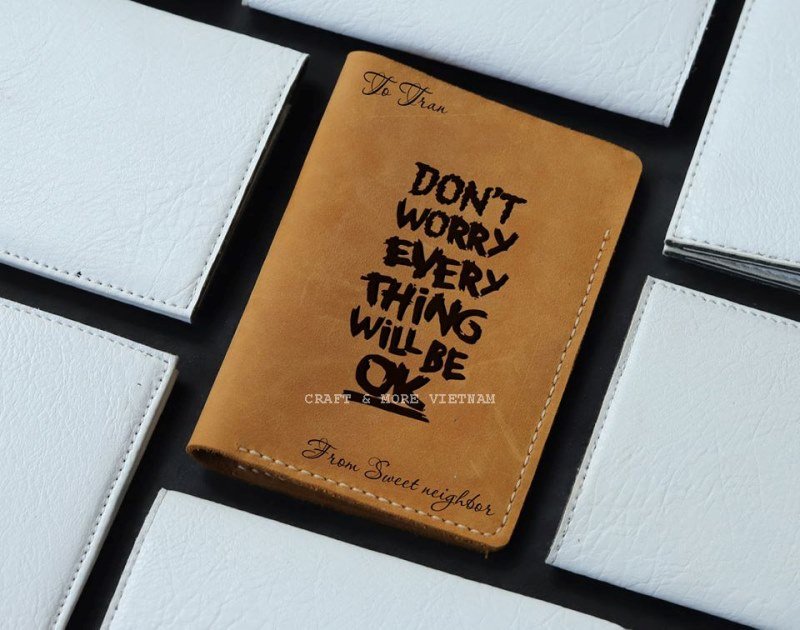 To Tran
DON'T
WORRY
EVERY
THiNG
WiLL BE
OK
CRAFT & MORE VIETNAM
From Sweet neighbor